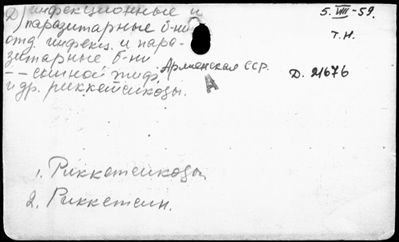 Д) инфекционные и
паразитарные б-ни
отд. инфекц. и пара-
зитарные б-ни
-- сыпной тиф. Армянская ССР.
и др. риккетсиозы.
А
5.VIII-59.
Т.Н.
Д. 21676
1. Риккетсиозы
2. Риккетсии.